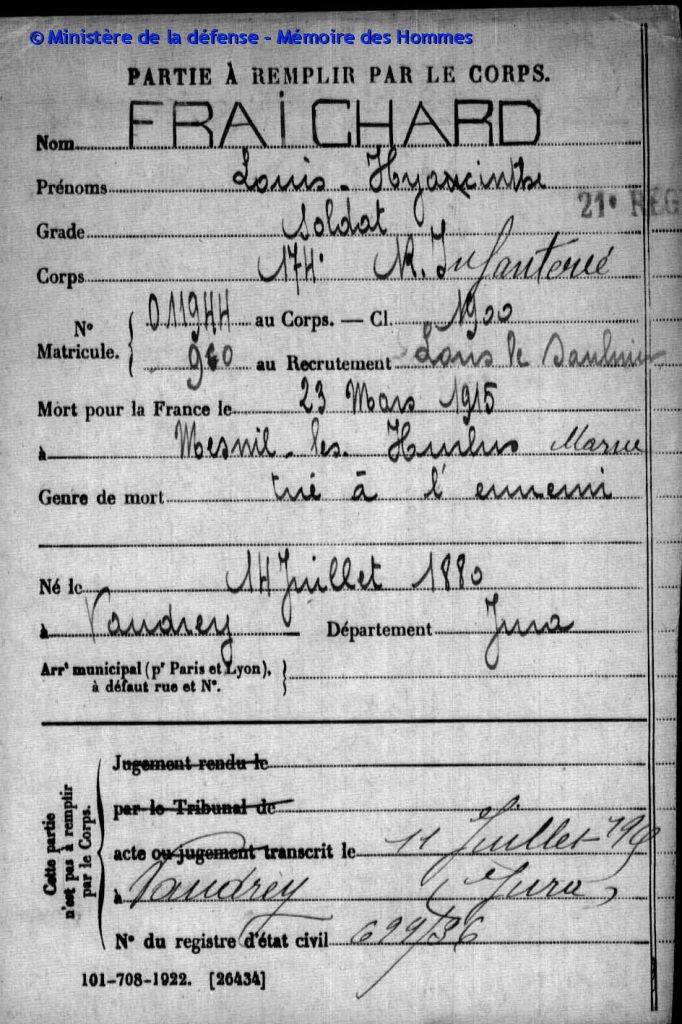 © Ministère de la défense - Mémoire des Hommes
PARTIE À REMPLIR PAR LE CORPS.
Nom FRAICHARD
Prénoms Louis - Hyacinthe
21e REG
Grade Soldat
Corps 174e R. Infanterie
N° Matricule. { 011944 au Corps. — Cl. 1900
960 au Recrutement Lons le Saulnier
Mort pour la France le 23 Mars 1915
à Mesnil - les Hurlus Marne
Genre de mort tué à l'ennemi
Né le 14 Juillet 1880
à Vaudrey — Département Jura
Arrt municipal (pr Paris et Lyon),
à défaut rue et N°. }
Cette partie
n'est pas à remplir
par le Corps.
Jugement rendu le
par le Tribunal de
acte ou jugement transcrit le 11 Juillet
à Vaudrey (Jura)
N° du registre d'état civil 699/36
101-708-1922. [26434]